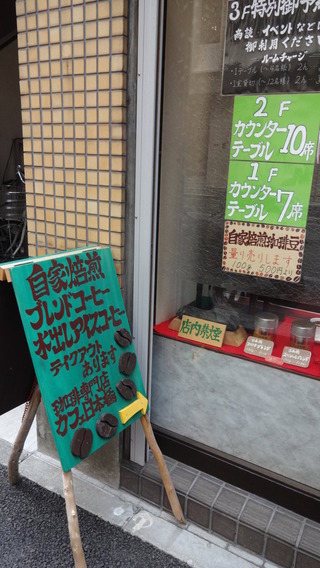 3F特別御予
商談、イベントなどに
御利用くださ
ルームチャージ
2F
カウンター
テーブル10席
1F
カウンター
テーブル7席
自家焙煎珈琲豆
量り売りします
100g 500円より
店内禁煙
自家焙煎
ブレンドコーヒー
水出しアイスコーヒー
テイクアウト
あります
珈琲専門店
カフェ日本橋